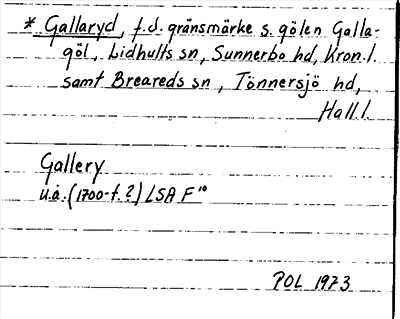 * Gallaryd, f.d. gränsmärke s. gölen Galla-
göl, Lidhults sn, Sunnerbo hd, Kron.l.
samt Breareds sn, Tönnersjö hd,
Hall.l.
Gallery
u.å. (1700-t.?) LSA F¹⁰
POL 1973